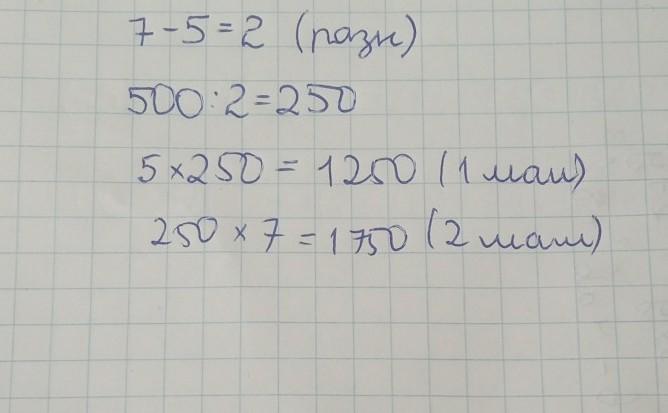 7-5=2 (разн)
500:2=250
5×250=1250 (1 маш)
250×7=1750 (2 маш)